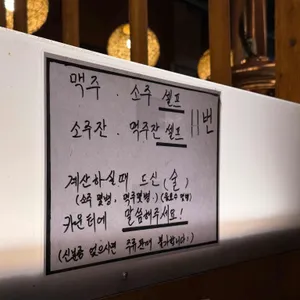 맥주 . 소주 셀프
소주잔 . 맥주잔 셀프
11번
계산하실때 드신 (술)
(소주 몇병, 맥주몇병.) (음료수 몇병)
카운터에 말씀해주세요!
(신분증 없으시면 주류판매 불가합니다:)